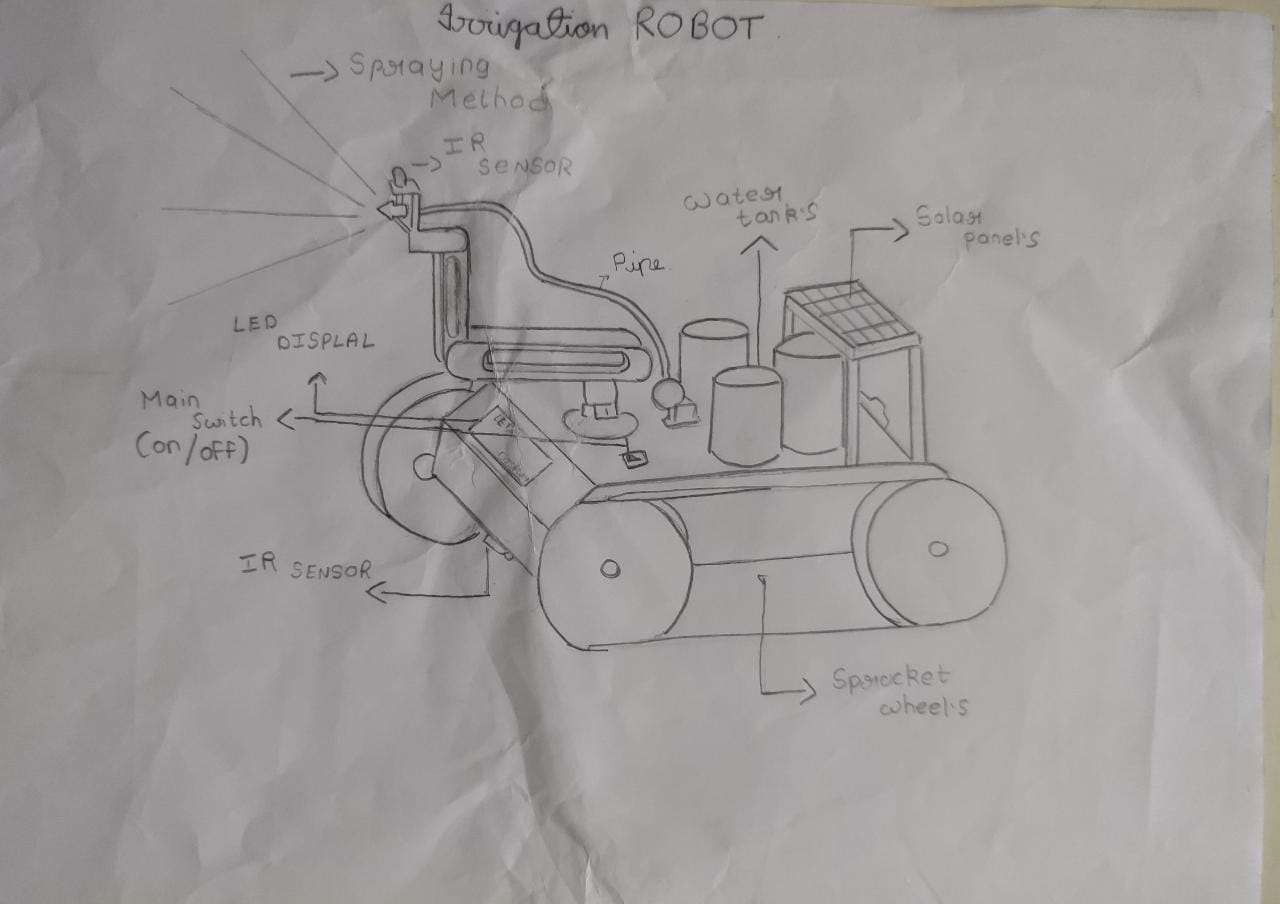 Irrigation ROBOT
Spraying
Method
IR
SENSOR
Water
tank's
Solar
panel's
Pipe
LED
DISPLAL
Main
Switch
(on/off)
LED
IR SENSOR
Sprocket
wheel's